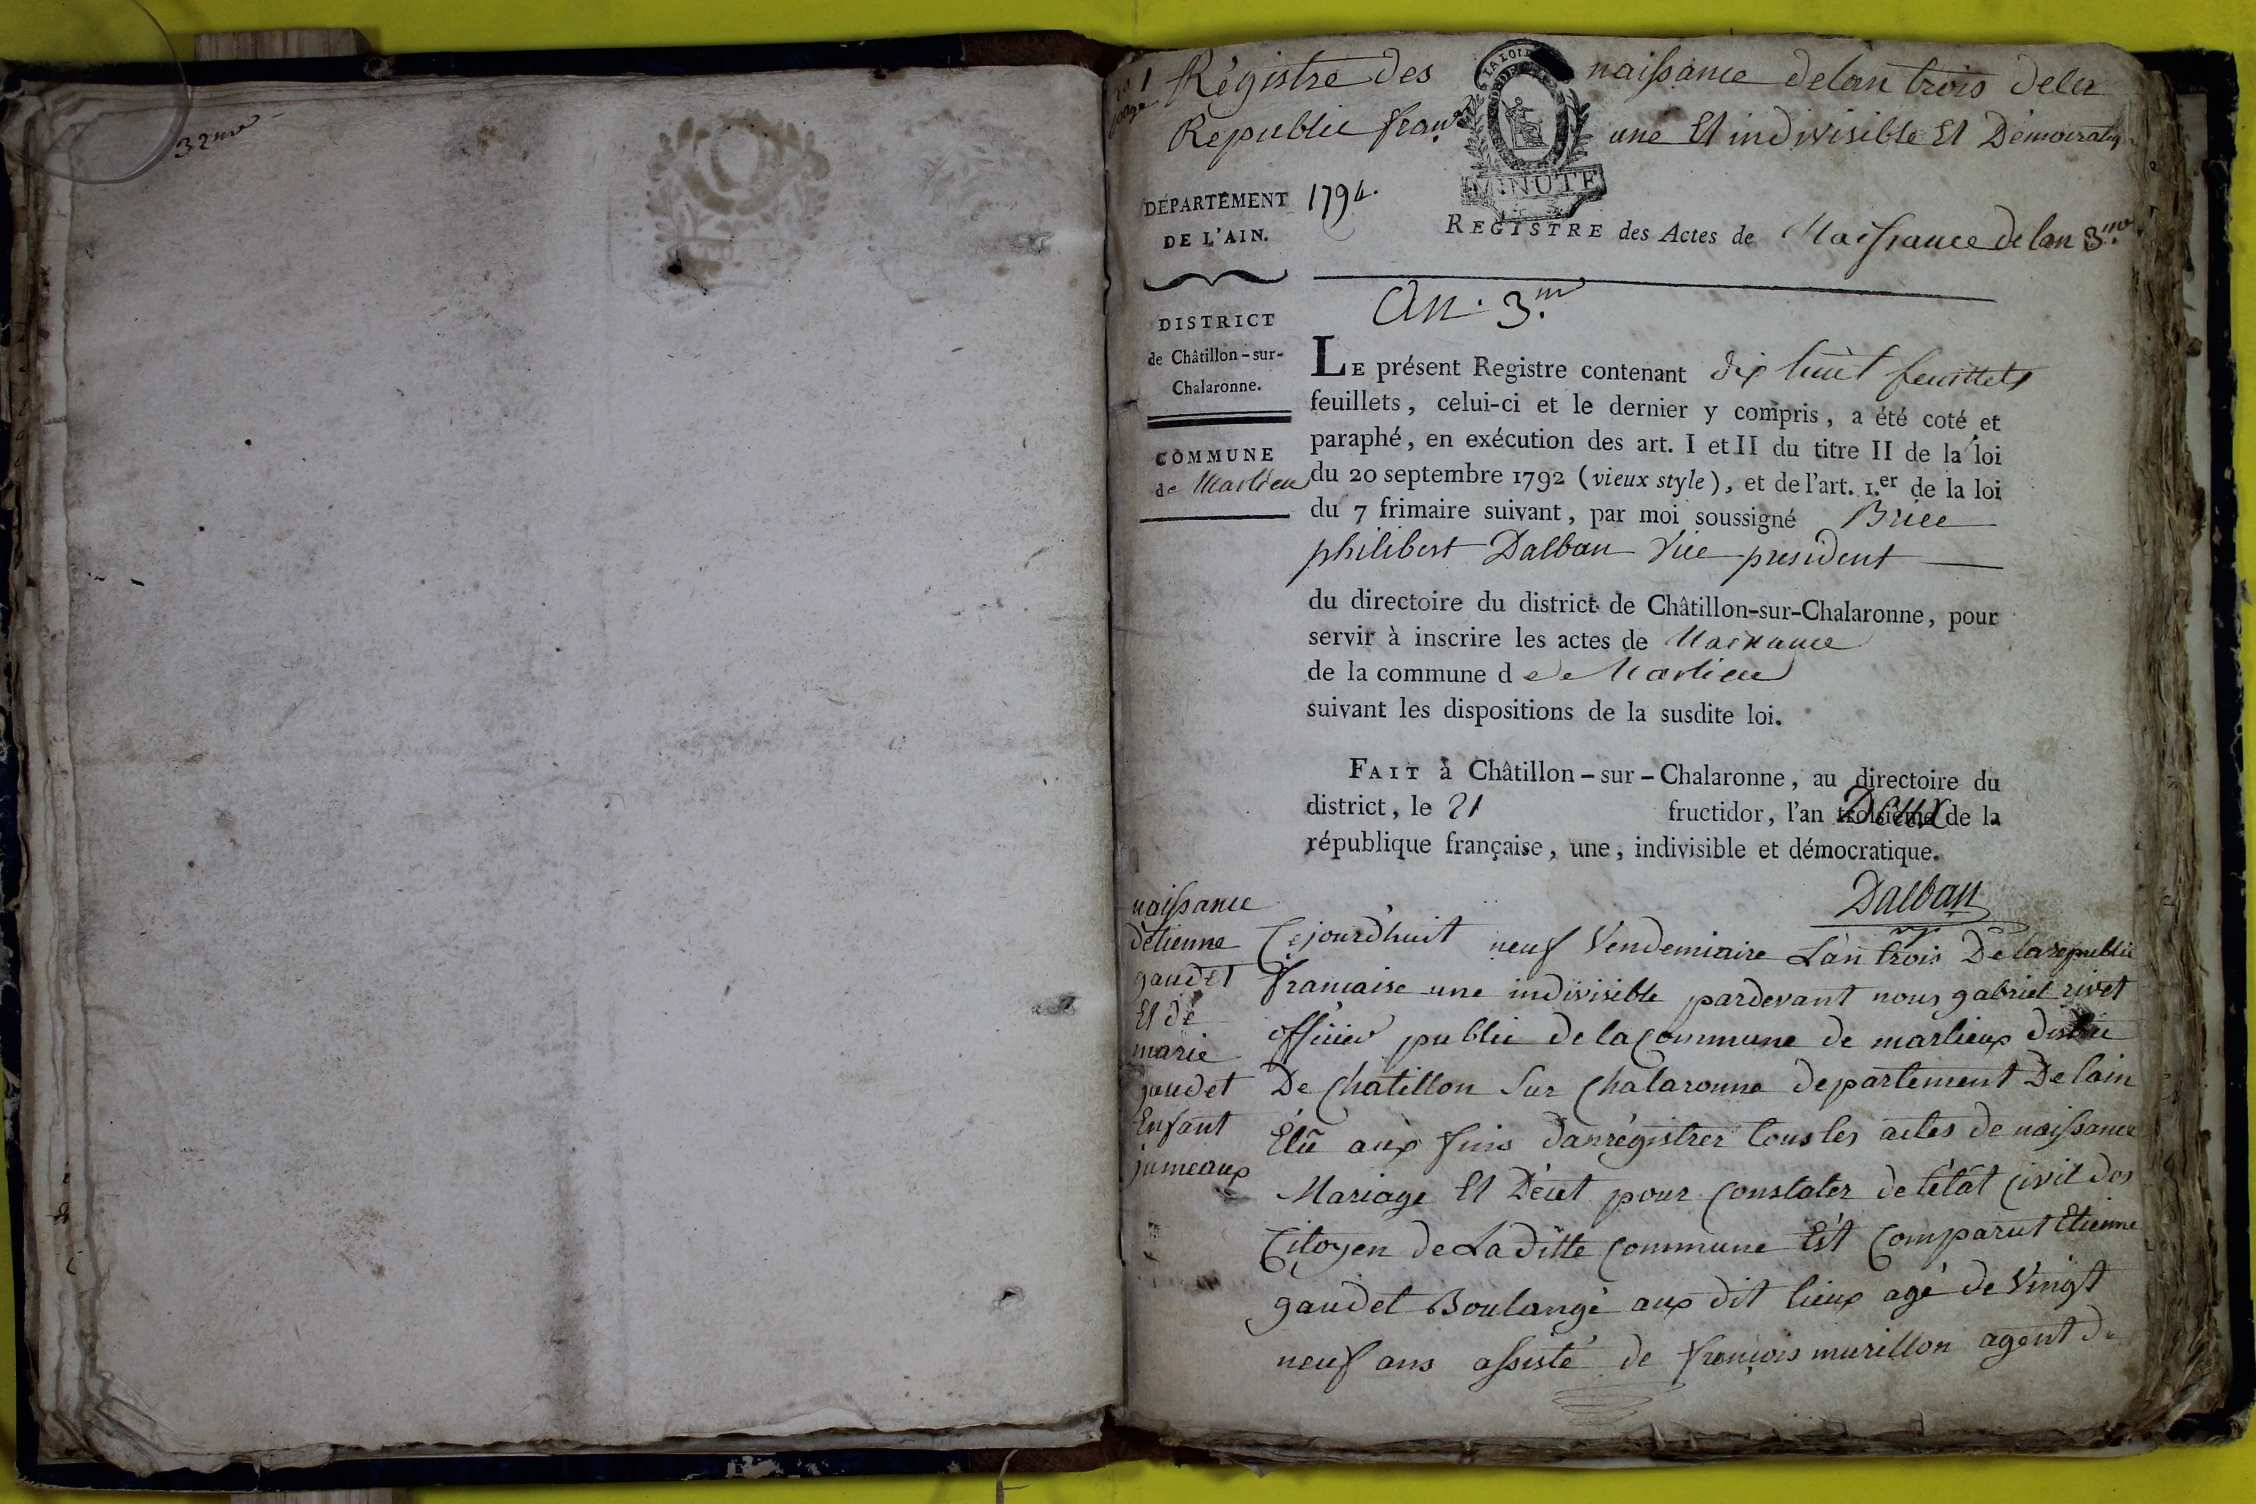 32me
1 Régistre des naissance delan trois dela
page
Republic franse une Et indivisible Et Démocratiq
LA LOI
MINUTE
DÉPARTEMENT 1794.
DE L'AIN.
REGISTRE des Actes de Naissance de lan 3.me
An. 3.m
DISTRICT
de Châtillon-sur-
Chalaronne.
COMMUNE
de Marlieu
LE présent Registre contenant dix huit feuillets
feuillets, celui-ci et le dernier y compris, a été coté et
paraphé, en exécution des art. I et II du titre II de la loi
du 20 septembre 1792 (vieux style), et de l'art. 1.er de la loi
du 7 frimaire suivant, par moi soussigné Brice
philibert Dalban Vice president
du directoire du district de Châtillon-sur-Chalaronne, pour
servir à inscrire les actes de Naissance
de la commune d e Marlieu
suivant les dispositions de la susdite loi.
FAIT à Châtillon-sur-Chalaronne, au directoire du
district, le 21 fructidor, l'an troisième Deux de la
république française, une, indivisible et démocratique.
Dalban
naissance
détienne
gaudet
Et de
marie
gaudet
Enfant
jumeaux
Cejourdhuit neuf Vendemiaire L'an trois De la republic
francaise une indivisible pardevant nous gabriel rivet
officier public de la Commune de marlieux district
De Chatillon Sur Chalaronne departement De lain
Élû aux fins danrégistrer tous les actes de naissance
Mariage Et Décet pour Constater de létat Civil des
Citoyen de La ditte Commune Est Comparut Etienne
gaudet Boulangé aux dit lieux agé de Vingt
neuf ans assisté de françois murillon agent de